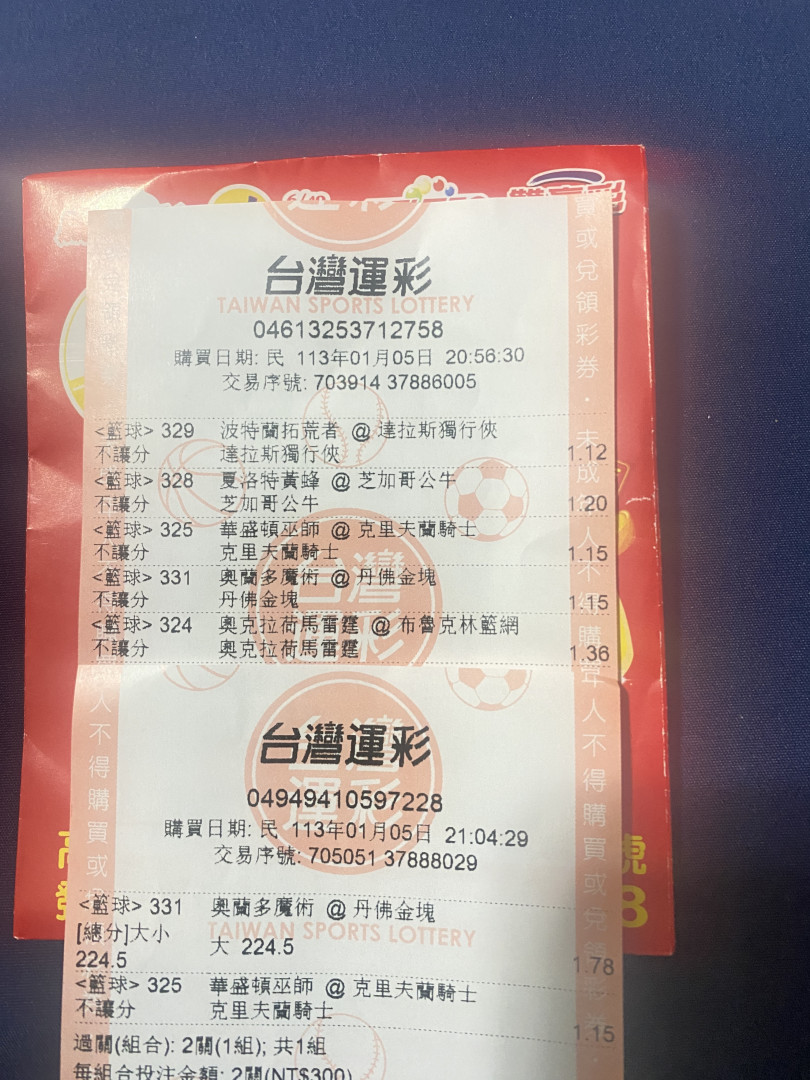 6/49
雙贏彩
運彩
台灣運彩
TAIWAN SPORTS LOTTERY
04613253712758
購買日期: 民 113年01月05日 20:56:30
交易序號: 703914 37886005
<籃球> 329 波特蘭拓荒者 @ 達拉斯獨行俠
不讓分 達拉斯獨行俠 1.12
<籃球> 328 夏洛特黃蜂 @ 芝加哥公牛
不讓分 芝加哥公牛 1.20
<籃球> 325 華盛頓巫師 @ 克里夫蘭騎士
不讓分 克里夫蘭騎士 1.15
<籃球> 331 奧蘭多魔術 @ 丹佛金塊
不讓分 丹佛金塊 1.15
<籃球> 324 奧克拉荷馬雷霆 @ 布魯克林籃網
不讓分 奧克拉荷馬雷霆 1.36
台灣運彩
台灣運彩
04949410597228
購買日期: 民 113年01月05日 21:04:29
交易序號: 705051 37888029
<籃球> 331 奧蘭多魔術 @ 丹佛金塊
TAIWAN SPORTS LOTTERY
[總分]大小 大 224.5
224.5 1.78
<籃球> 325 華盛頓巫師 @ 克里夫蘭騎士
不讓分 克里夫蘭騎士 1.15
過關(組合): 2關(1組); 共1組
每組合投注金額: 2關(NT$300)
賣或兌領彩券・未成
人不得購買或兌領
人不得購買或
台灣運彩
號
8